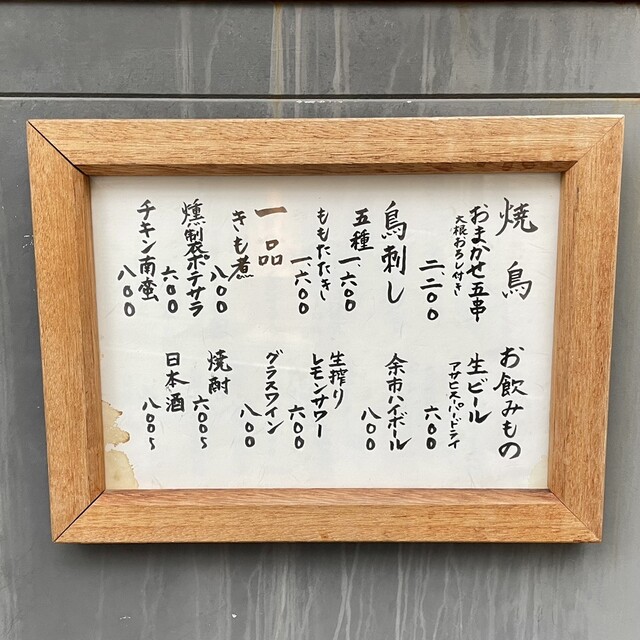 焼鳥
おまかせ五串
大根おろし付き
二、二〇〇
鳥刺し
五種
一、六〇〇
ももたたき
一、六〇〇
一品
きも煮
八〇〇
燻製ポテサラ
六〇〇
チキン南蛮
八〇〇
お飲みもの
生ビール
アサヒスーパードライ
六〇〇
余市ハイボール
八〇〇
生搾り
レモンサワー
六〇〇
グラスワイン
八〇〇
焼酎
六〇〇〜
日本酒
八〇〇〜